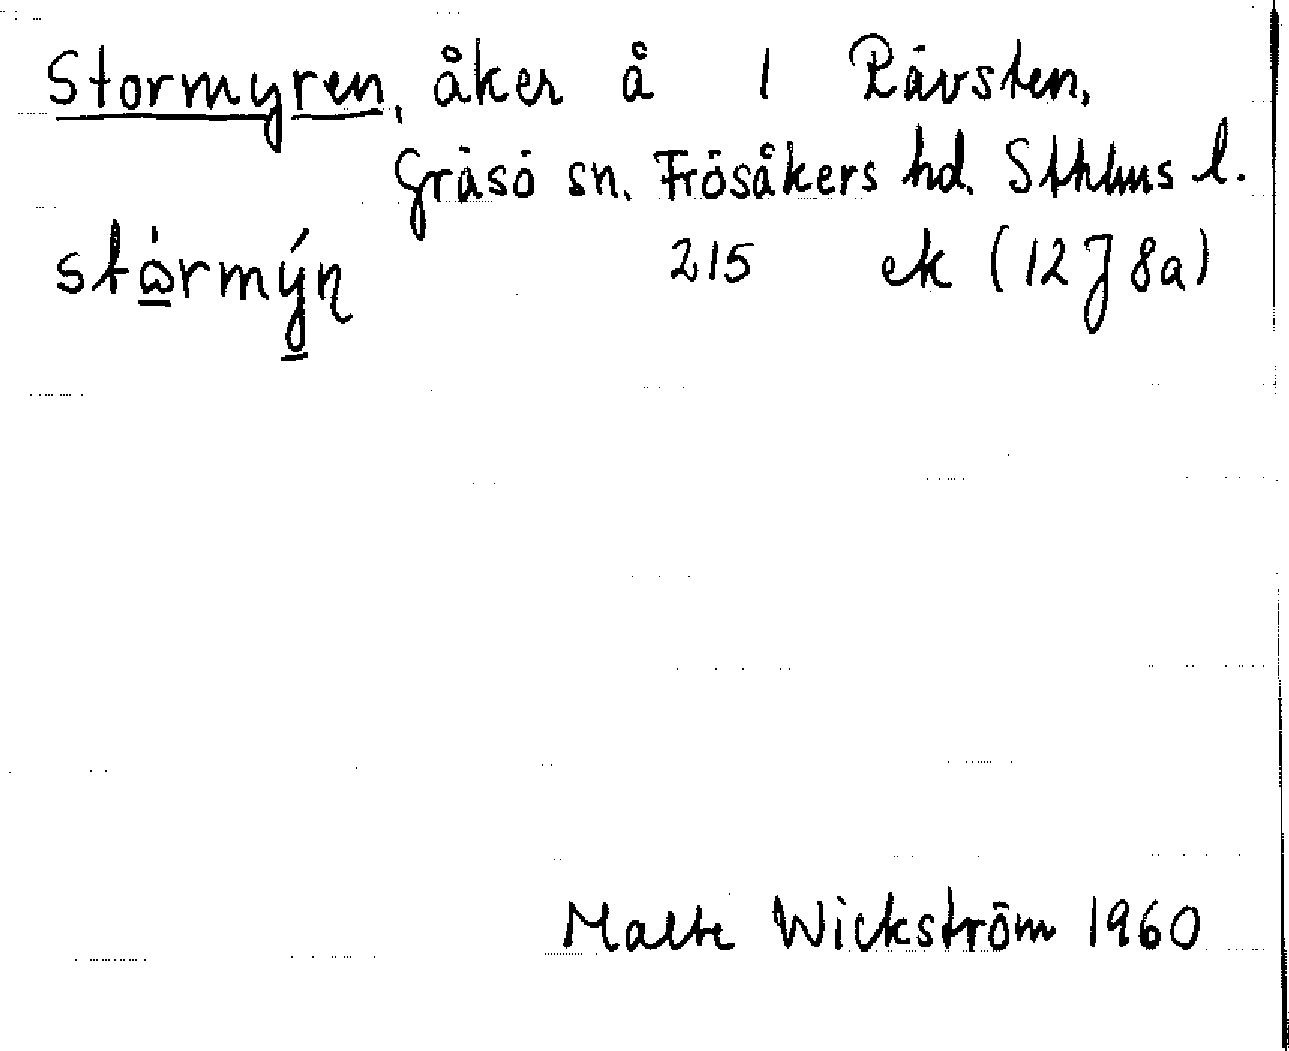 Stormyren, åker å 1 Rävsten,
Gräsö sn. Frösåkers hd. Sthlms l.
stὼ̲rmý̲ɳ 215 ek (12J8a)
Malte Wickström 1960